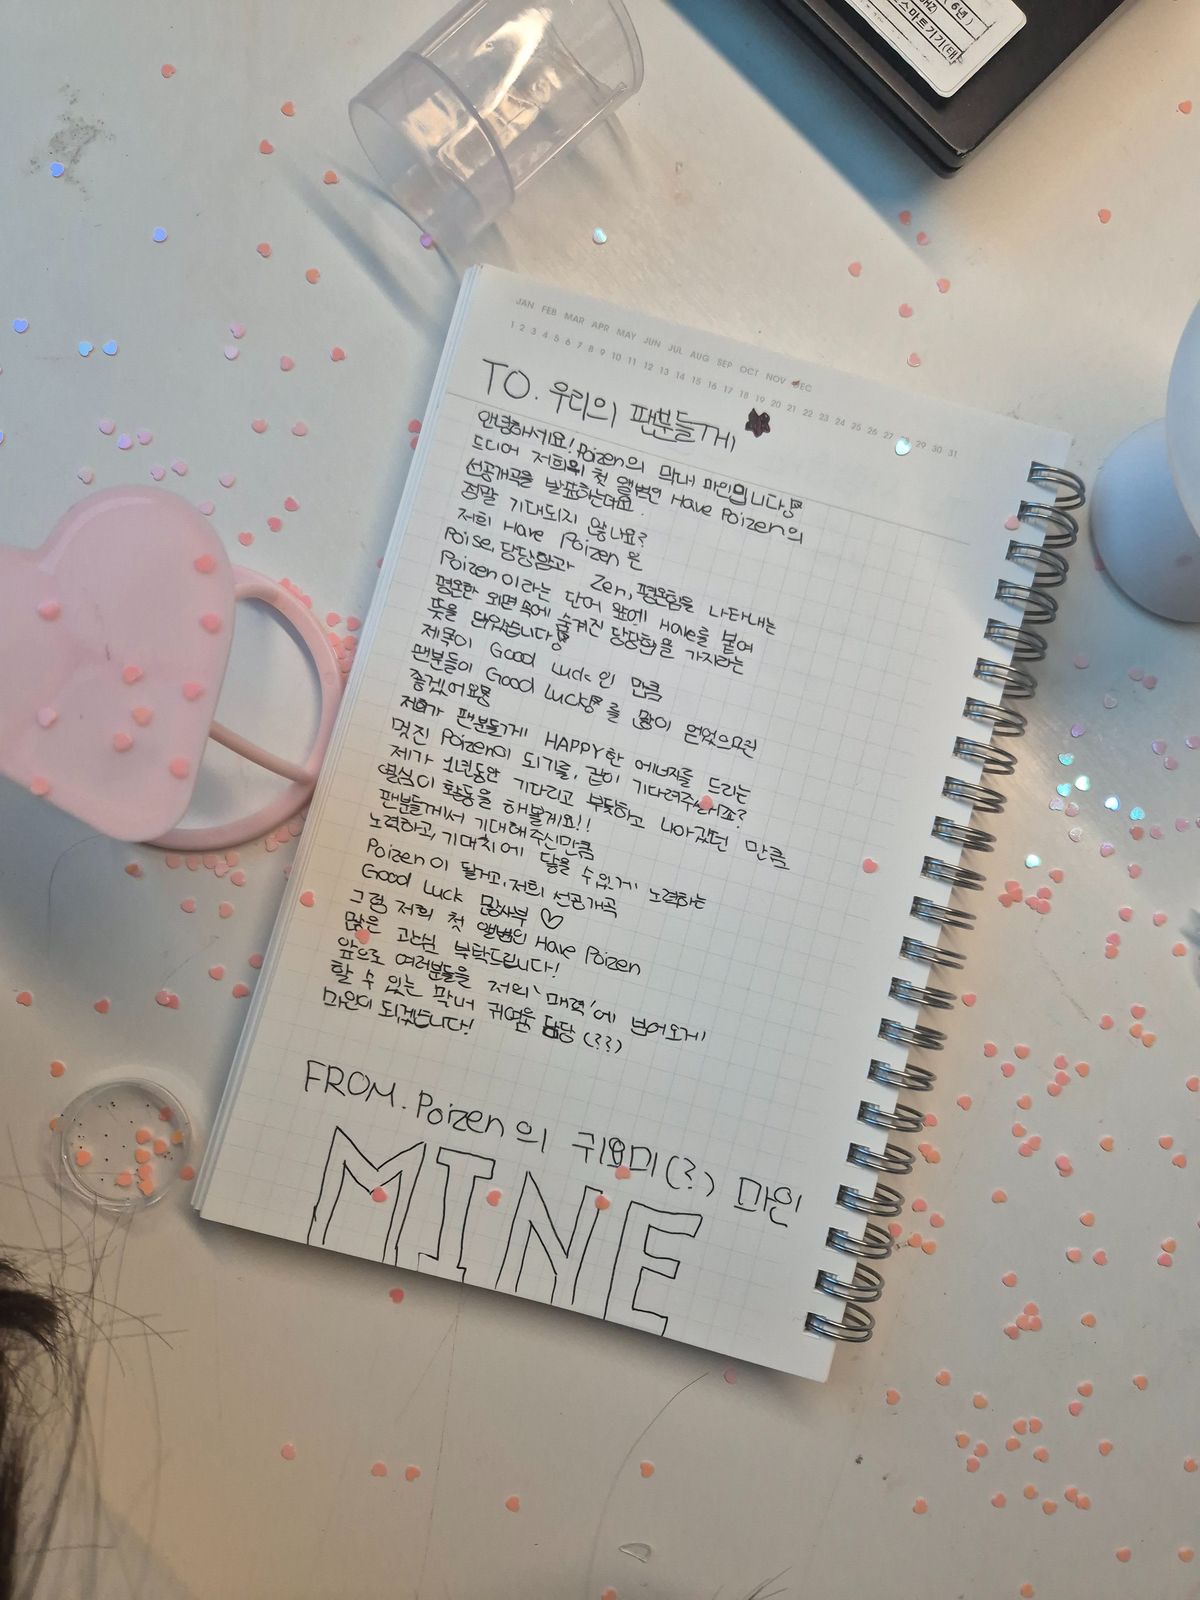 (6년)
스마트기기(태
JAN FEB MAR APR MAY JUN JUL AUG SEP OCT NOV DEC
1 2 3 4 5 6 7 8 9 10 11 12 13 14 15 16 17 18 19 20 21 22 23 24 25 26 27 28 29 30 31
TO. 우리의 팬분들께
안녕하세요! Poizen의 막내 마인입니다
드디어 저희의 첫 앨범인 Have Poizen의
선공개곡을 발표하는데요.
정말 기대되지 않나요?
저희 Have Poizen 은
Poise, 당당함과 Zen, 평온함을 나타내는
Poizen이라는 단어 앞에 Have를 붙여
평온한 외면 속에 숨겨진 당당함을 가지라는
뜻을 담았습니다
제목이 Good Luck 인 만큼
팬분들이 Good Luck 를 많이 얻었으면
좋겠어요
저희가 팬분들게 HAPPY한 에너지를 드리는
멋진 Poizen이 되기를, 같이 기다려주실거죠?
제가 1년동안 기다리고 부딪히고 나아갔던 만큼
열심히 활동을 해볼게요!!
팬분들께서 기대해 주신만큼
노력하고, 기대치에 닿을 수 있게 노력하는
Poizen이 될거고, 저희 선공개곡
Good Luck 많사부 ♡
그럼 저희 첫 앨범인 Have Poizen
많은 관심 부탁드립니다!
앞으로 여러분들을 저의 '매력'에 빠져오게
할 수 있는 막내 귀여움 담당 (??)
마인이 되겠습니다!
FROM. Poizen의 귀요미(?) 마인
MINE